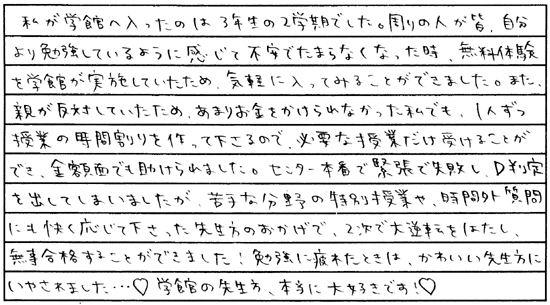 私が学館へ入ったのは3年生の2学期でした。周りの人が皆、自分
より勉強しているように感じて不安でたまらなくなった時、無料体験
を学館が実施していたため、気軽に入ってみることができました。また、
親が反対していたため、あまりお金をかけられなかった私でも、1人ずつ
授業の時間割りを作って下さるので、必要な授業だけ受けることが
でき、金額面でも助けられました。センター本番で緊張で失敗し、D判定
を出してしまいましたが、苦手な分野の特別授業や、時間外質問
にも快く応じて下さった先生方のおかげで、2次で大逆転をはたし、
無事合格することができました!勉強に疲れたときは、かわいい先生方に
いやされました…♡学館の先生方、本当に大好きです!♡